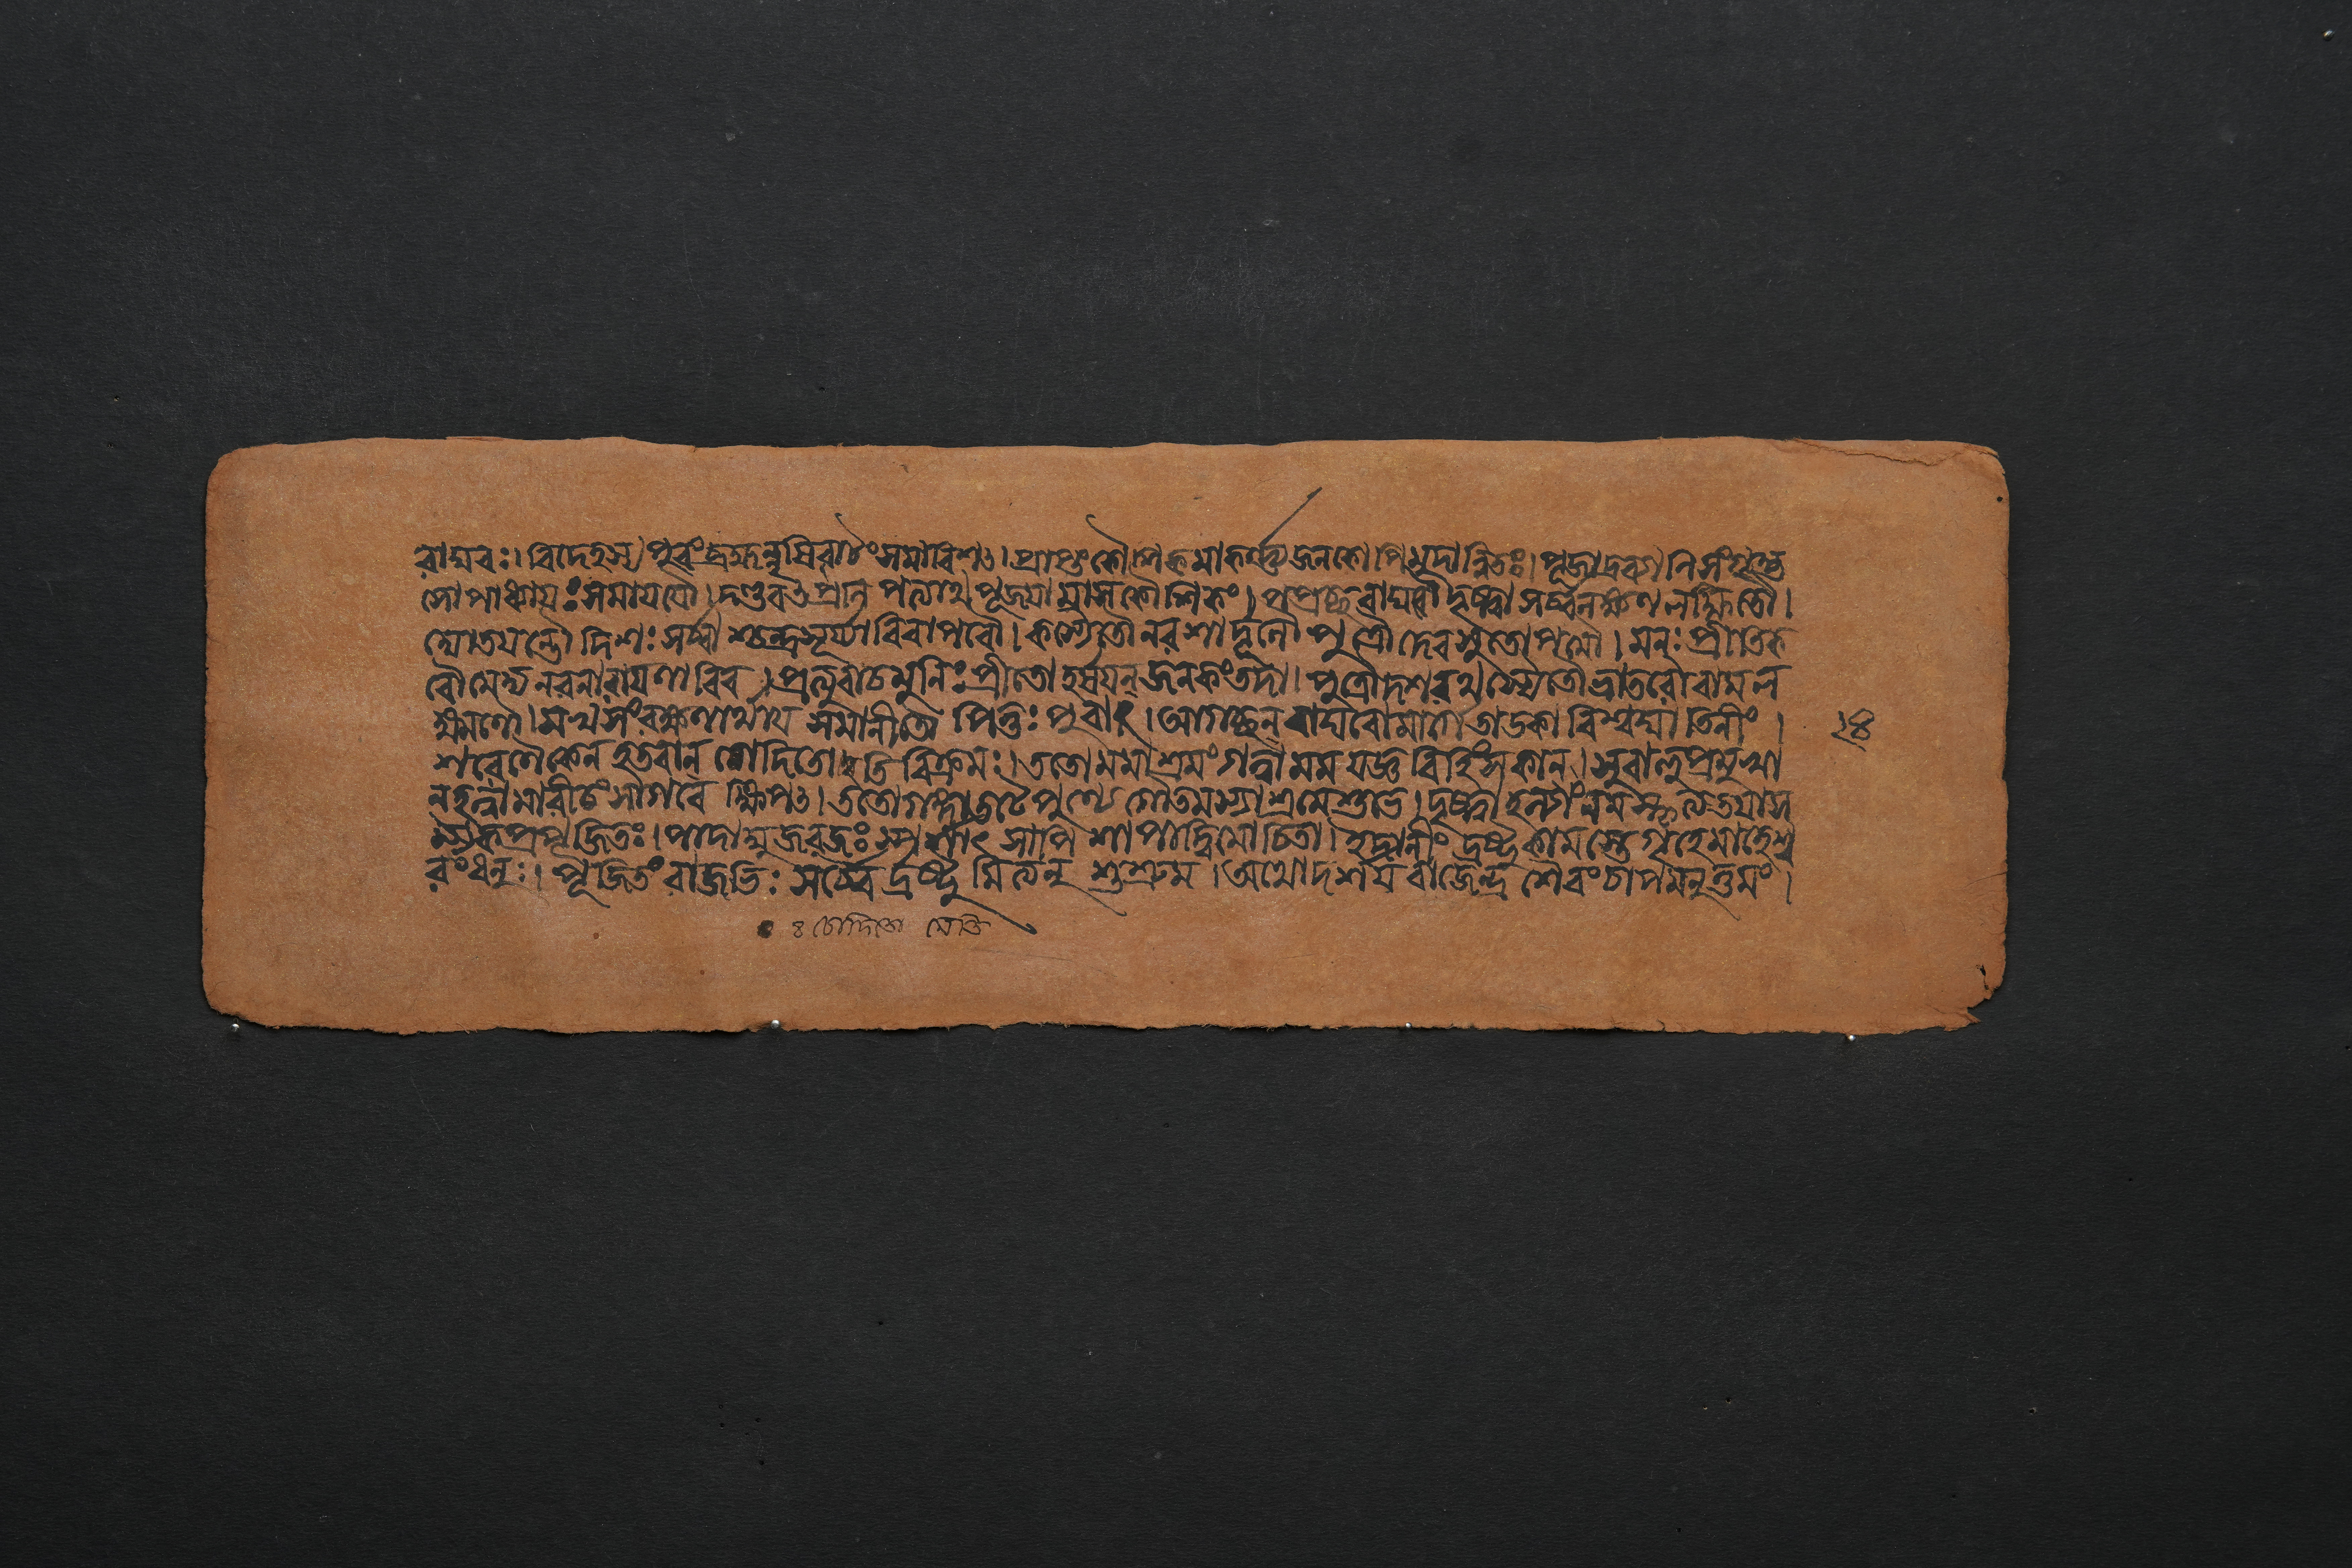 রাঘবঃ। বিদেহস্য পুরং সমাবিশৎ। প্রাপ্তং কৌশিকমাকর্ণ্য জনকোপি মুদান্বিতঃ। পূজাদ্রব্যাণি সংগৃহ্য
সোপাধ্যায়ঃ সমাযযৌ। দণ্ডবৎ প্রণিপত্যাথ পূজয়ামাস কৌশিকং। পপ্রচ্ছ রাঘবৌ দৃষ্ট্বা সর্ব্বলক্ষণলক্ষিতৌ।
দ্যোতযন্তৌ দিশঃ সর্ব্বাশ্চন্দ্রসূর্য্যাবিবাপরৌ। কস্যৈতৌ নরশার্দূলৌ পুত্রৌ দেবসুতোপমৌ। মনঃপ্রীতিক
রৌ মেদ্য নরনারায়ণাবিব। প্রত্যুবাচ মুনিঃ প্রীতো হর্ষযন্ জনকং তদা। পুত্রৌ দশরথস্যৈতৌ ভ্রাতরৌ রামল
ক্ষ্মণৌ। মখসংরক্ষণার্থায় সমানীতৌ পিতুঃ পুরাৎ। আগচ্ছন্ রাঘবো মার্গে তাডকাং বিশ্বঘাতিনীং।
শরেণৈকেন হতবান্ নোদিতো বিক্রমঃ। ততো মমাশ্রমং গত্বা মম যজ্ঞবিহিংসকান্। সুবাহুপ্রমুখা
ন্ হত্বা মারীচং সাগরে ক্ষিপৎ। ততো গঙ্গাতটে পুণ্যে গৌতমস্যাশ্রমে শুভে। দৃষ্ট্বাহল্যাং নমস্কৃত্য তযা স
ম্যক্ প্রপূজিতঃ। পাদাম্বুজরজঃস্পর্শাৎ সাপি শাপাদ্বিমোচিতা। ইদানীং দ্রষ্টুকামস্তে গৃহে মাহেশ্ব
রং ধনুঃ। পূজিতং রাজভিঃ সর্ব্বৈর্দ্রষ্টুমিত্যনুশুশ্রুম। অথো দর্শয় রাজেন্দ্র শৈবং চাপমনুত্তমং।
২৪
৪ চোদিতো মেতি